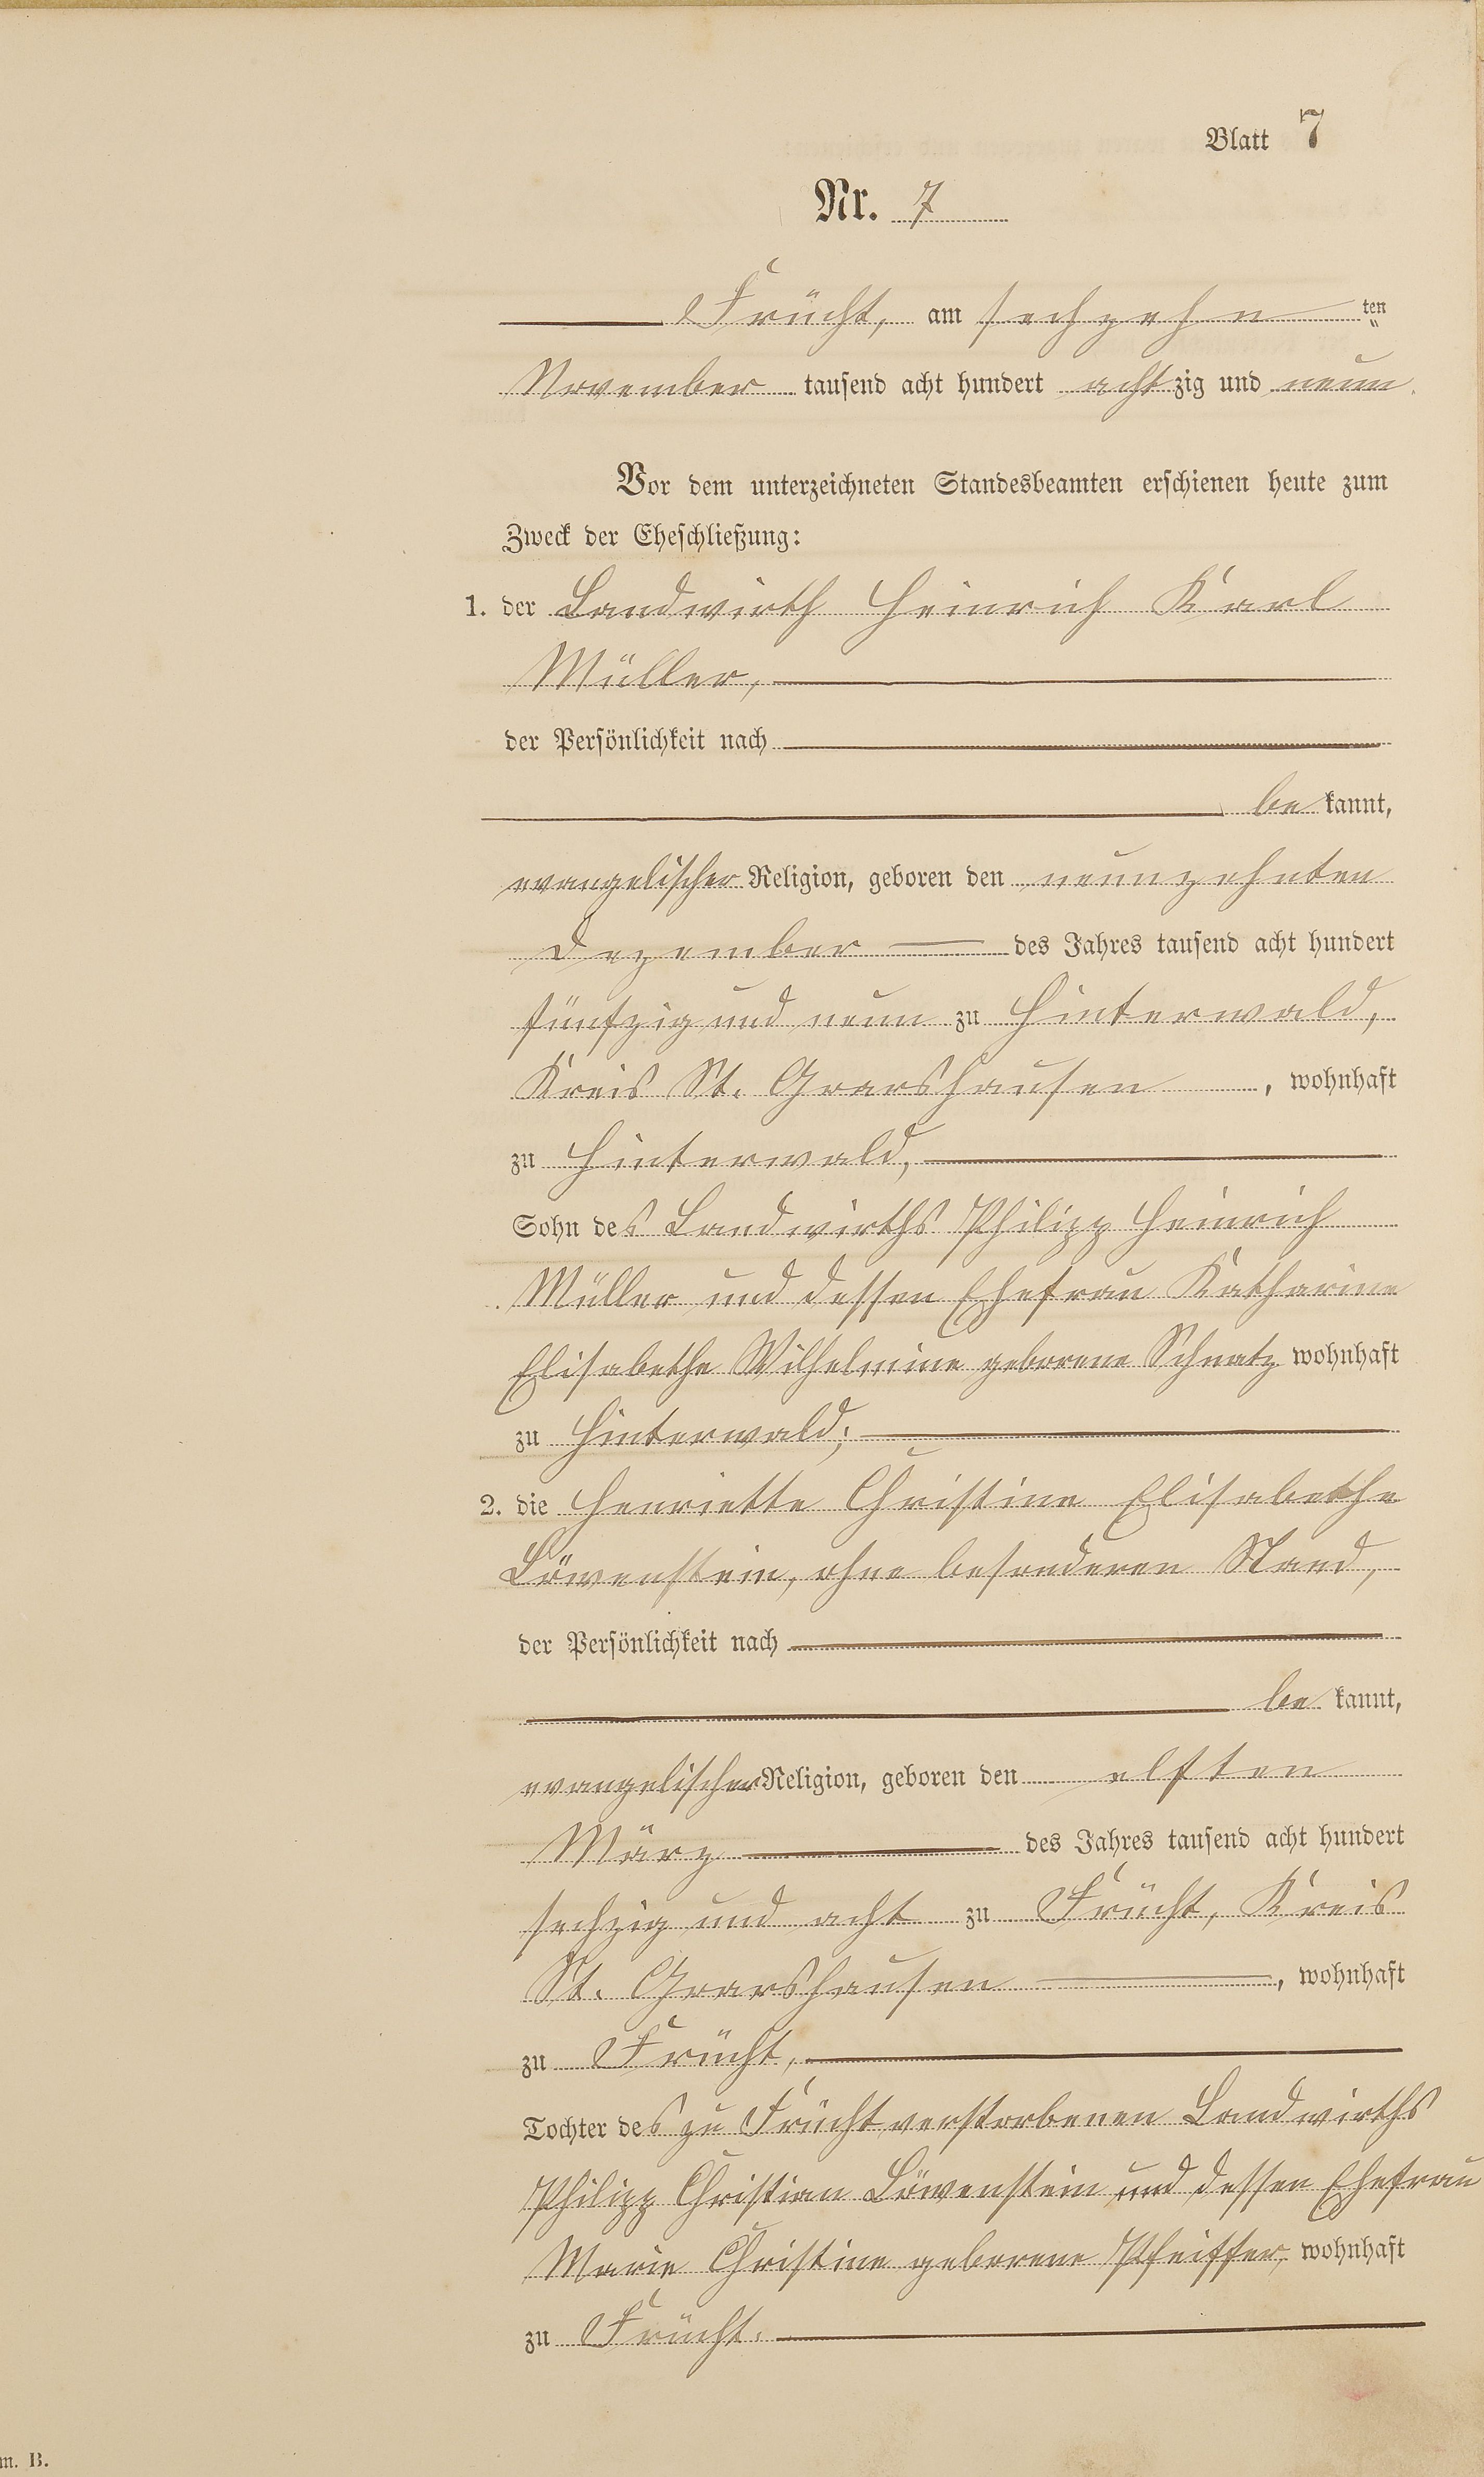 Blatt 7
Nr. 7
Frücht, am sechzehn ten
November tausend acht hundert achtzig und neun.
Vor dem unterzeichneten Standesbeamten erschienen heute zum
Zweck der Eheschließung:
1. der Landwirth Heinrich Karl
Müller,
der Persönlichkeit nach
be kannt,
evangelischer Religion, geboren den neunzehnten
Dezember des Jahres tausend acht hundert
fünfzig und neun zu Hinterwald,
Kreis St. Goarshausen, wohnhaft
zu Hinterwald,
Sohn des Landwirths Philipp Heinrich
Müller und dessen Ehefrau Katharine
Elisabethe Wilhelmine geborene Schnatz wohnhaft
zu Hinterwald;
2. die Henriette Christine Elisabethe
Löwenstein, ohne besonderen Stand,
der Persönlichkeit nach
be kannt,
evangelischer Religion, geboren den elften
März des Jahres tausend acht hundert
sechzig und acht zu Frücht, Kreis
St. Goarshausen, wohnhaft
zu Frücht,
Tochter des zu Frücht verstorbenen Landwirths
Philipp Christian Löwenstein und dessen Ehefrau
Marie Christine geborene Pfeiffer, wohnhaft
zu Frücht.
m. B.